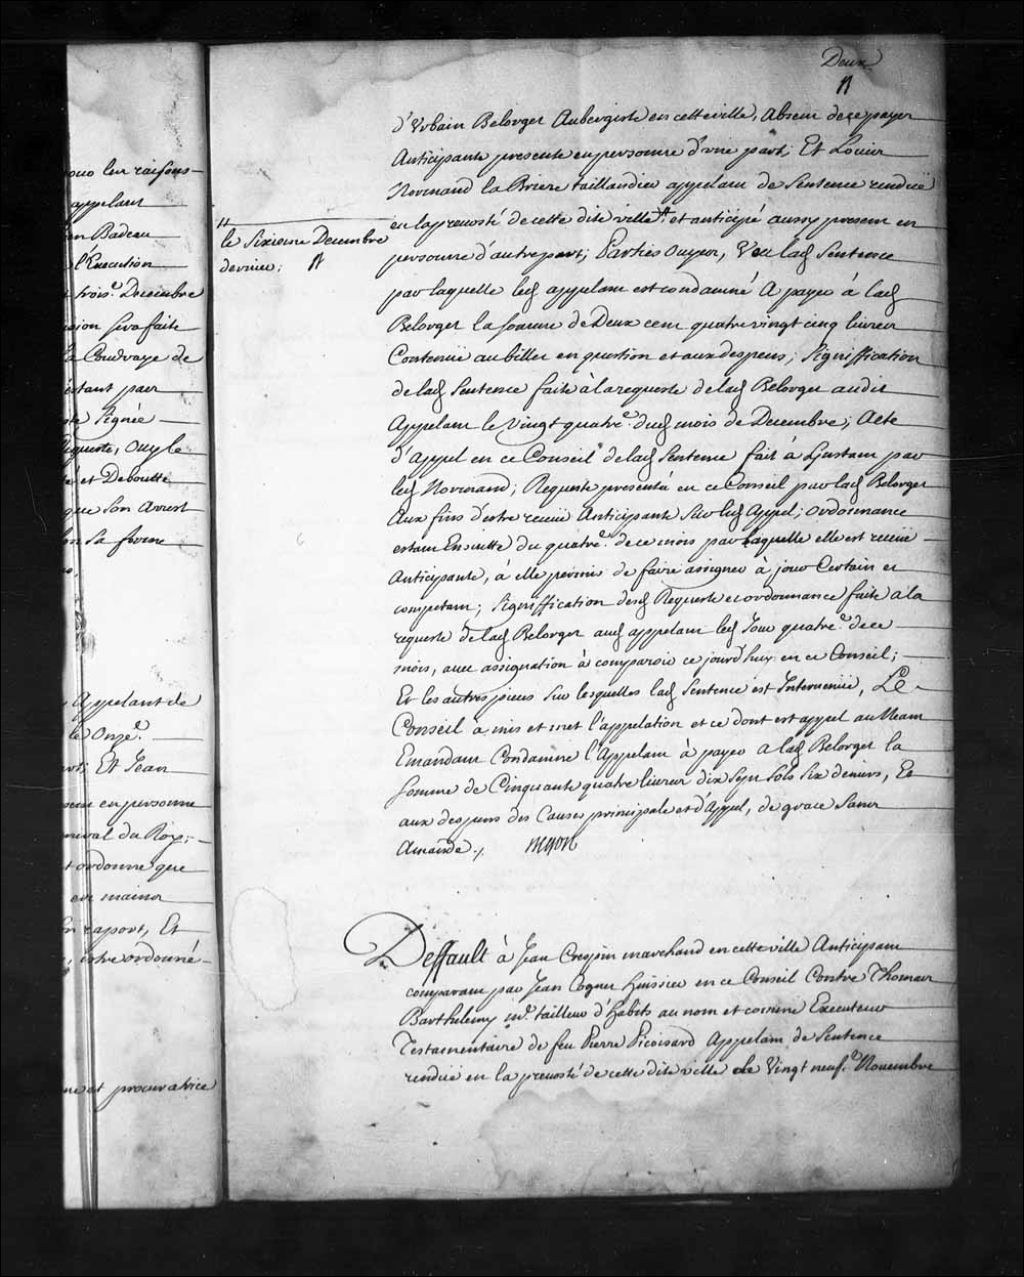 ouo leur raisons
appelant
en Badeau
l'Execution
trois.e Decembre
sion sera faite
la Coudraye de
estant par
te Signée
Requeste, Ouy le
é et Deboutte
que Son Arrest
en Sa forme
Appelant de
le Onze.e
art; Et Jean
en personne
neral du Roy;
t ordonne que
en mains
En raport, Et
estre ordonné
procuratrice
Deux
d'Urbain Belorger Aubergiste en cette ville, Absent de ce payer
Anticipante presente en personne d'une part; Et Louis
Normand la Briere taillandier appelant de Sentence rendüe
en la prevosté de cette dite ville et anticipé aussy present en
le Sixiesme Decembre
dernier;
personne d'autre part; Parties Ouyes, Veu lad Sentence
par laquelle led appelant est condamné A payer à lad
Belorger la somme de Deux cent quatre vingt cinq livres
Contenüe au billet en question et aux despens; Signiffication
de lad Sentence faite à la requeste de lad Belorger audit
Appelant le Vingt quatre.e dud mois de Decembre; Acte
d'Appel en ce Conseil de lad Sentence fait à Linstant par
led Normand; Requeste presentée en ce Conseil par lad Belorger
Aux fins d'estre receüe Anticipante Sur led Appel; ordonnance
estant Ensuitte du quatre.e de ce mois par laquelle elle est receüe
Anticipante, à elle permis de faire assigner à jour Certain et
competant; Signiffication desd Requeste et ordonnance faite a la
requeste de lad Belorger aud appelant led Jour quatre.e de ce
mois, avec assignation à comparoir ce jourd'huy en ce Conseil;
Et les autres pieces Sur lesquelles lad Sentence est Intervenüe, Le
Conseil a mis et met l'appelation et ce dont est appel au Neant
Emandant Condamne l'Appelant à payer a lad Belorger la
Somme de Cinquante quatre livres dix Sept Sols Six deniers, Et
aux despens des Causes principale et d'Appel, de grace Sans
Amande.
Deffault à Jean Crespin marchand en cette ville Anticipant
comparant par Jean Cognet huissier en ce Conseil Contre Thomas
Barthelemy m.e tailleur d'habits au nom et comme Executeur
Testamentaire de feu Pierre Picoisard Appelant de Sentence
rendüe en la prevosté de cette dite ville le Vingt neuf.e Novembre